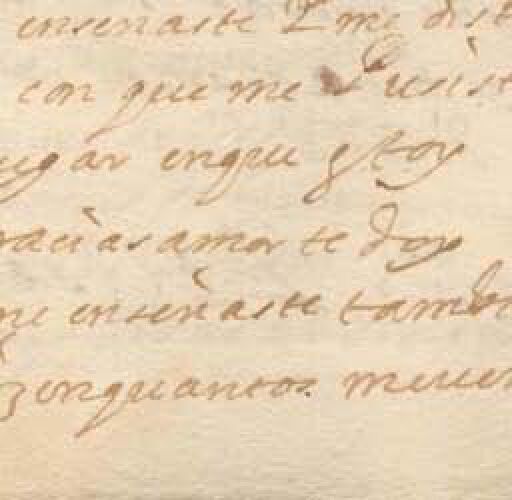 enseñaste I me dist
con que me pusist
ugar enque estoy
racias amor te doy
me enseñaste tambi
enquantos me